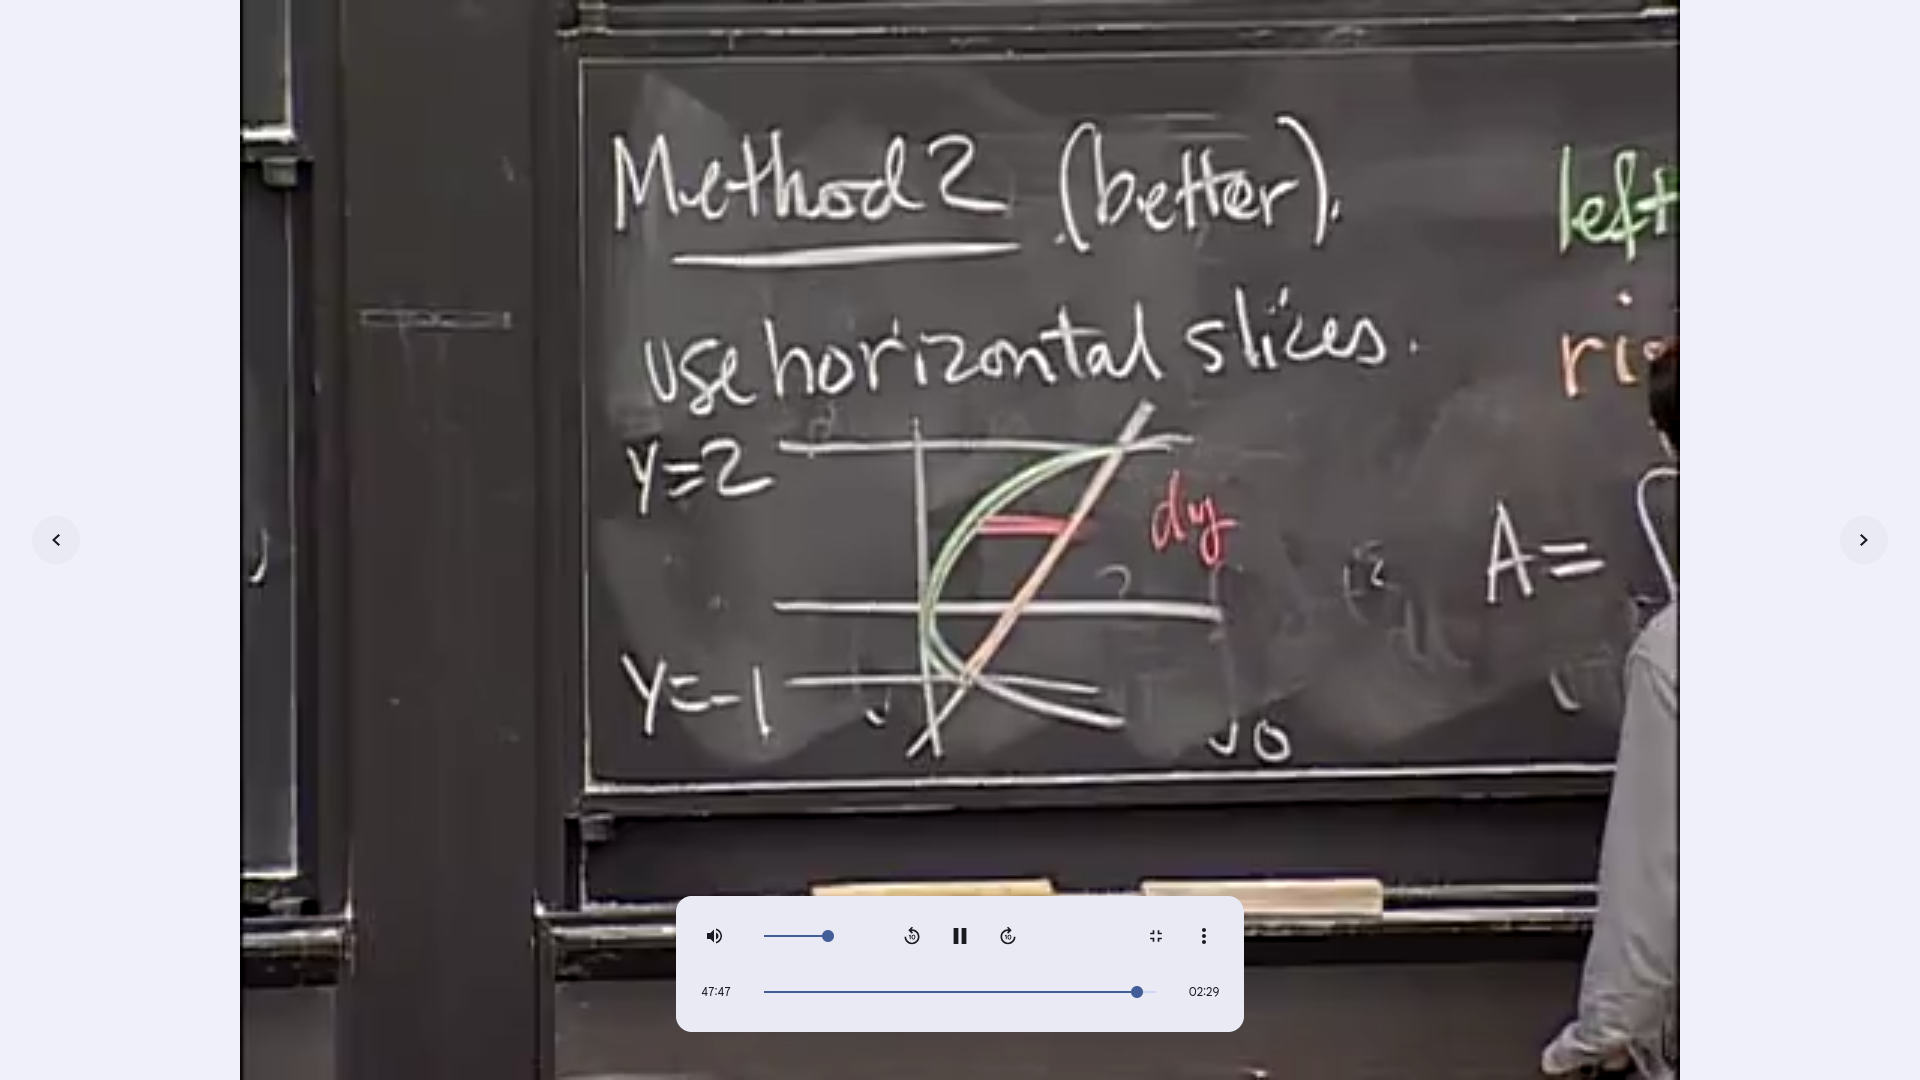 Method 2 (better).
use horizontal slices.
y=2
dy
y=-1
left
A=
47:47
02:29